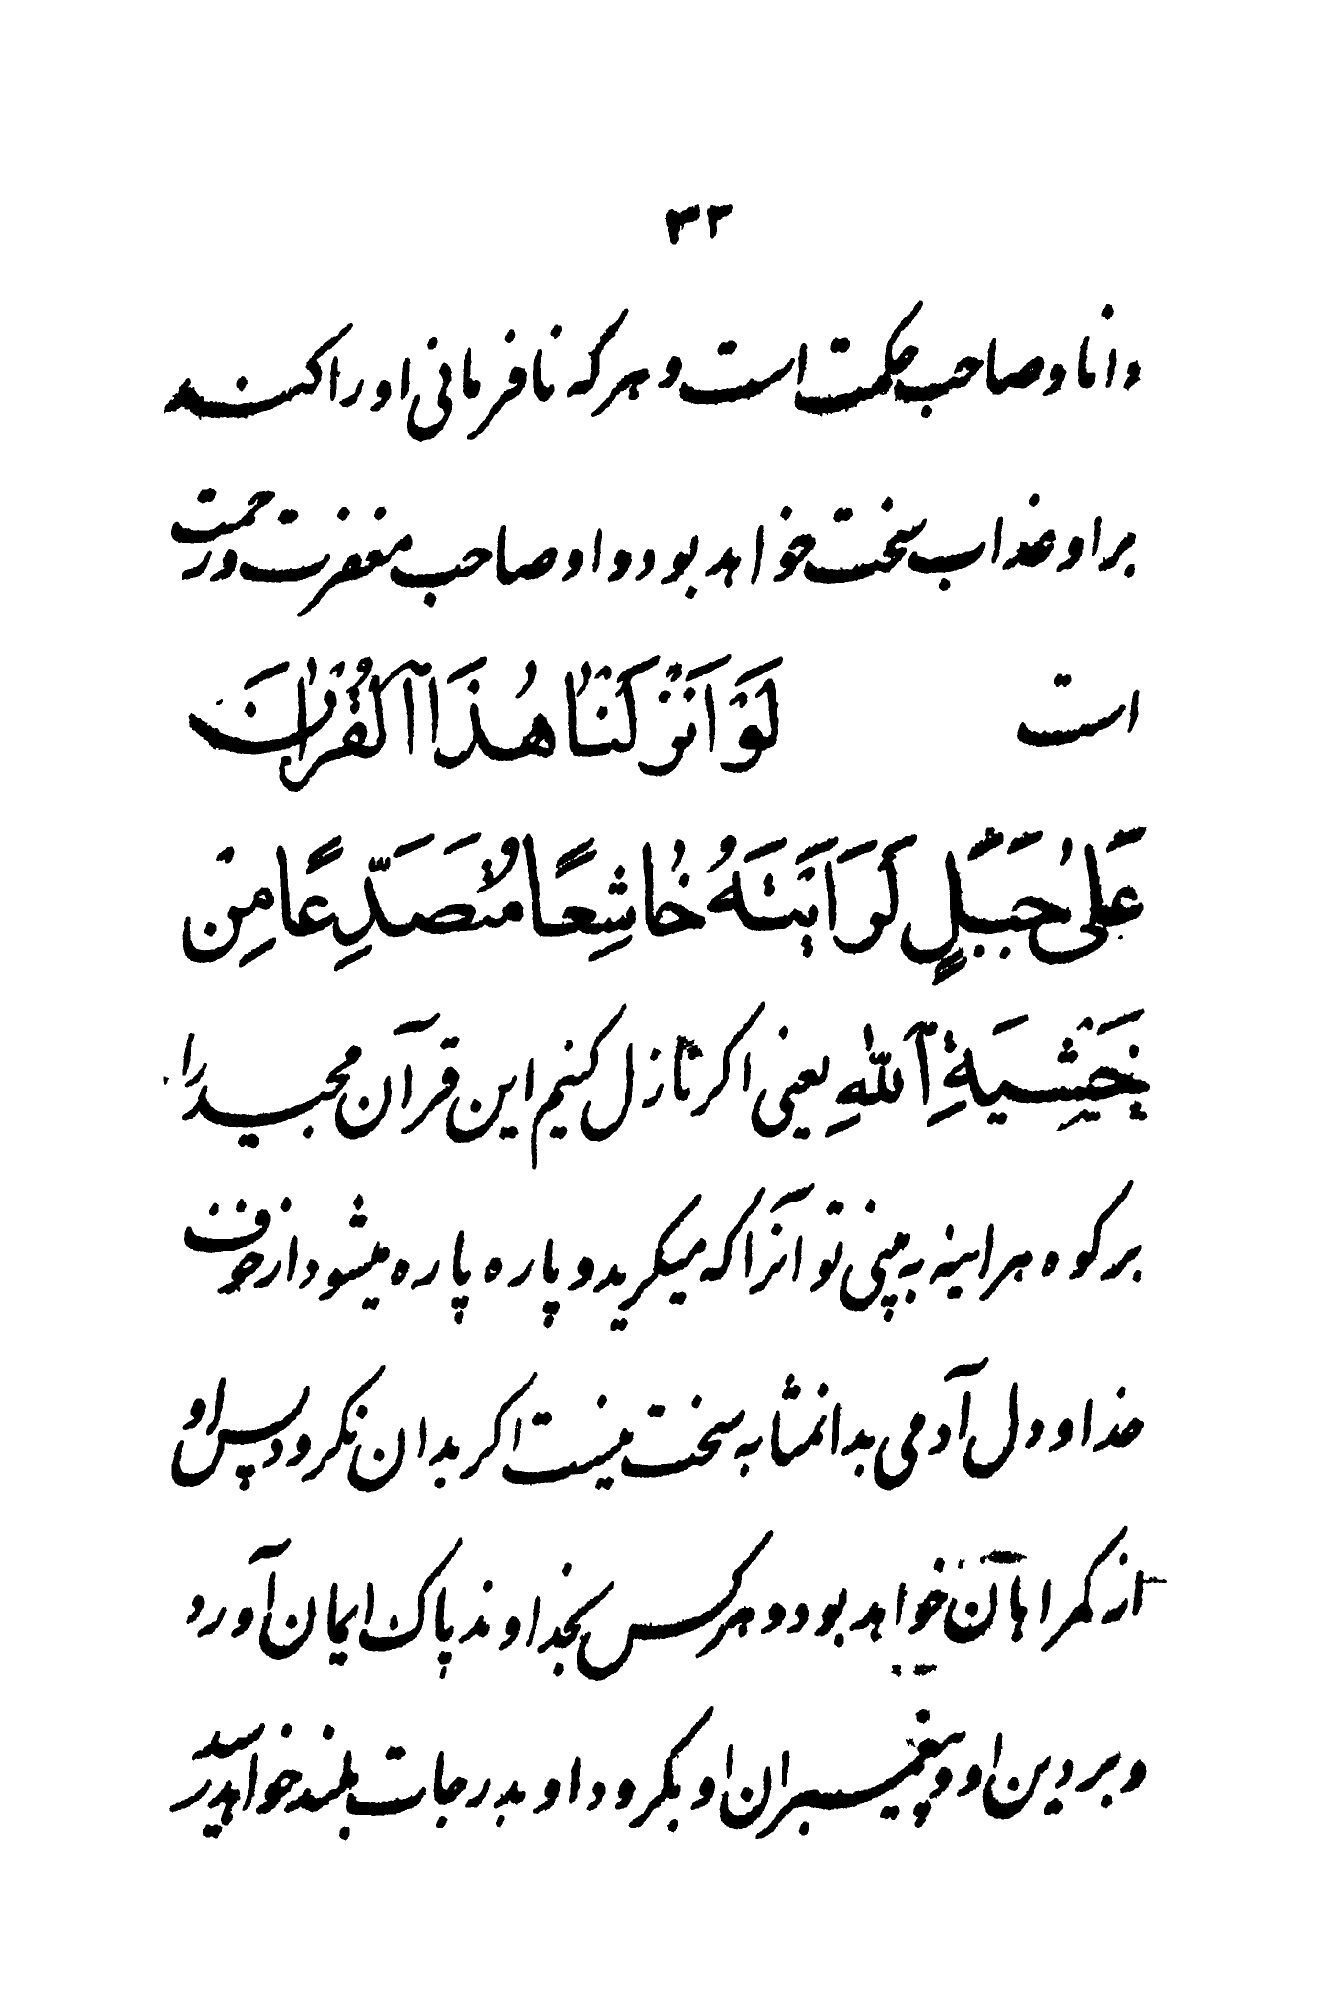 ۳۲
دانا و صاحب حکمت است و هر که نافرمانی او را کند
بر او عذاب سخت خواهد بود و او صاحب مغفرت و رحمت
است لَوْ اَنْزَلْنَا هٰذَا الْقُرْاٰنَ
عَلٰی جَبَلٍ لَرَاَیْتَهُ خَاشِعًا مُتَصَدِّعًا مِنْ
خَشْیَةِ اللّٰهِ یعنی اکر نازل کنیم این قرآن مجید را
بر کوه هراینه به بینی تو آنرا که میکرید و پاره پاره میشود از خوف
خدا و دل آدمی بدانمثابه سخت نیست اکر بدان نکرود پس او
از کمراهان خواهد بود و هر کس بخداوند پاک ایمان آورد
و بر دین او و پیغمبران او بکرود او بدرجات بلند خواهد رسید